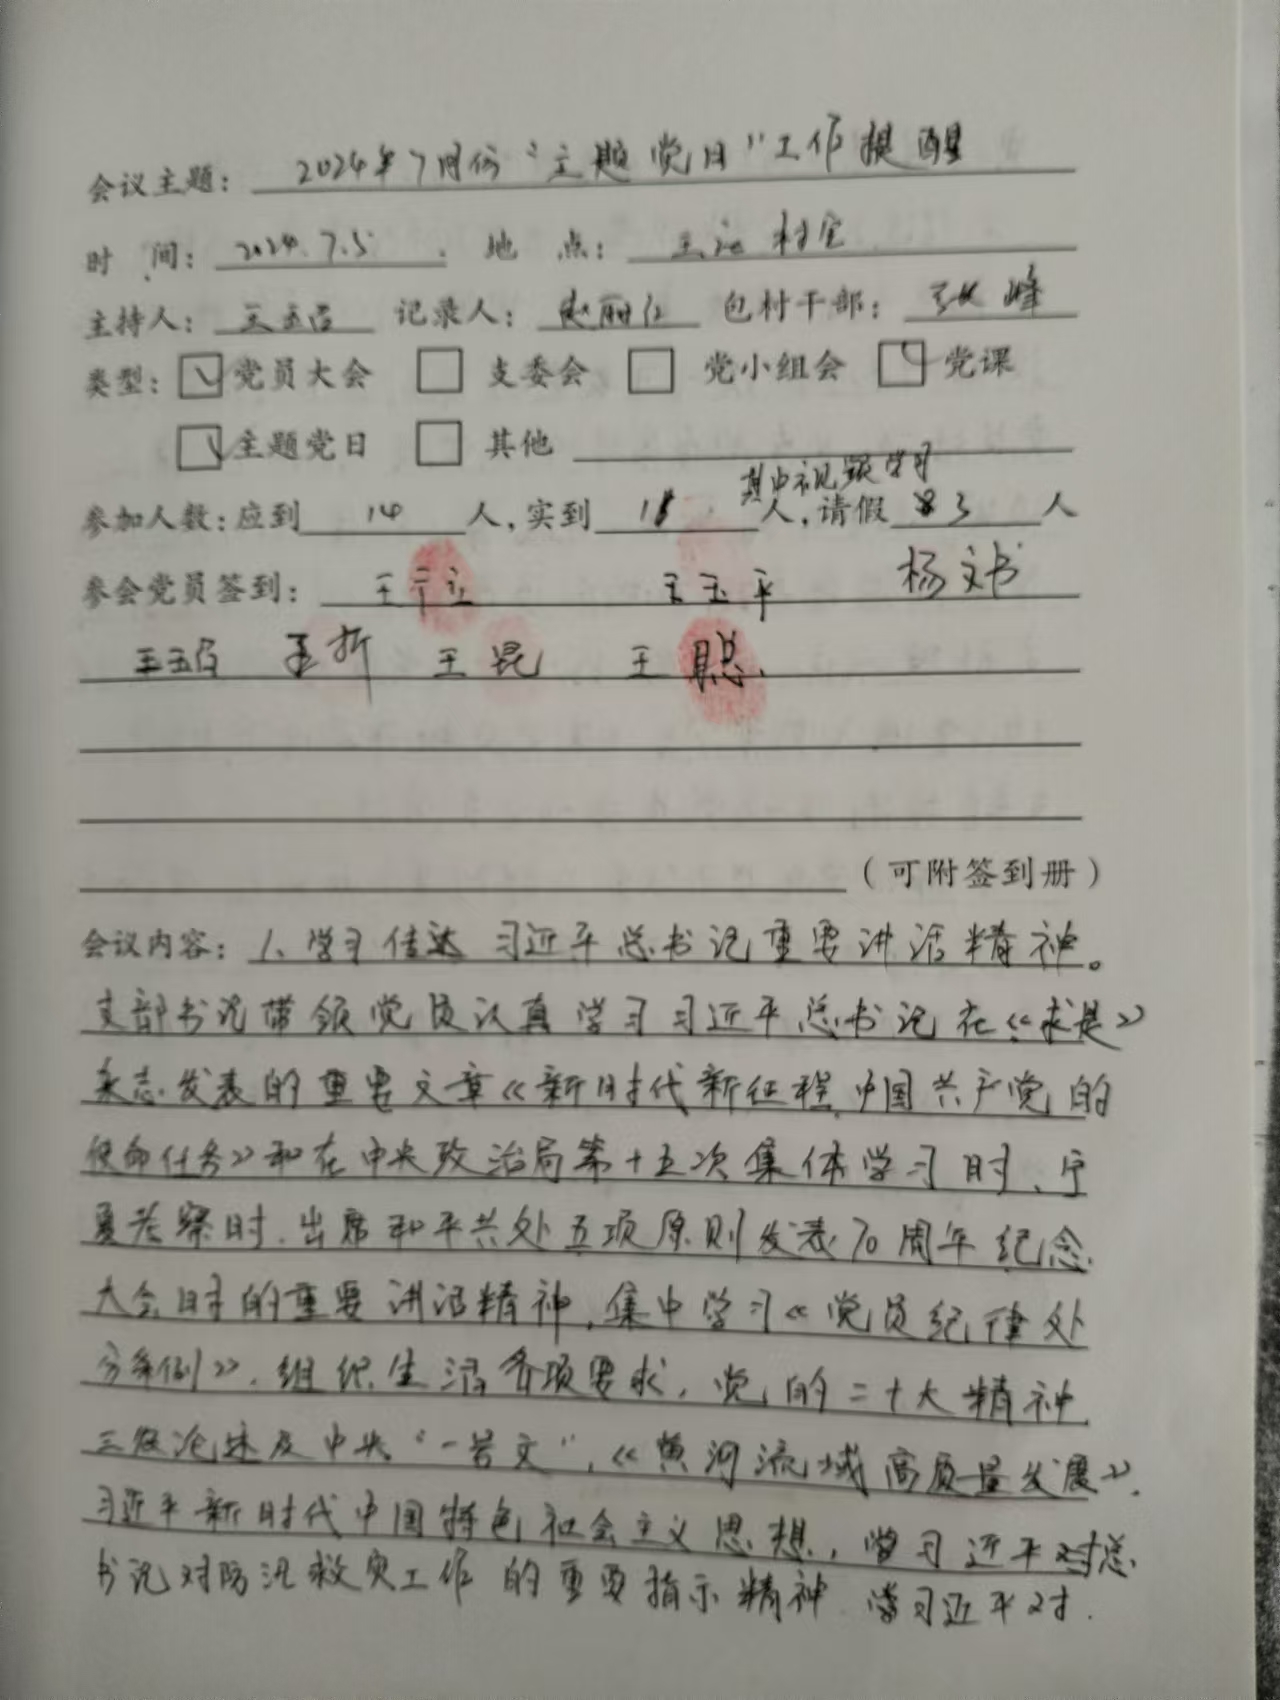 会议主题：2024年7月份“主题党日”工作提醒
时 间：2024.7.5. 地 点：王 村室
主持人：王玉 记录人：赵丽 包村干部：张峰
类型：党员大会 支委会 党小组会 党课
主题党日 其他
其中视频学习
参加人数：应到14人，实到11人，请假3人
参会党员签到：王 立 王玉平 杨文书
王玉 王昆 王聪
（可附签到册）
会议内容：1、学习传达习近平总书记重要讲话精神。
支部书记带领党员认真学习习近平总书记在《求是》
杂志发表的重要文章《新时代新征程中国共产党的
使命任务》和在中央政治局第十五次集体学习时、宁
夏考察时、出席和平共处五项原则发表70周年纪念
大会时的重要讲话精神，集中学习《党员纪律处
分条例》、组织生活各项要求，党的二十大精神
三农论述及中央“一号文”，《黄河流域高质量发展》、
习近平新时代中国特色社会主义思想，学习近平对总
书记对防汛救灾工作的重要指示精神 学习近平对.